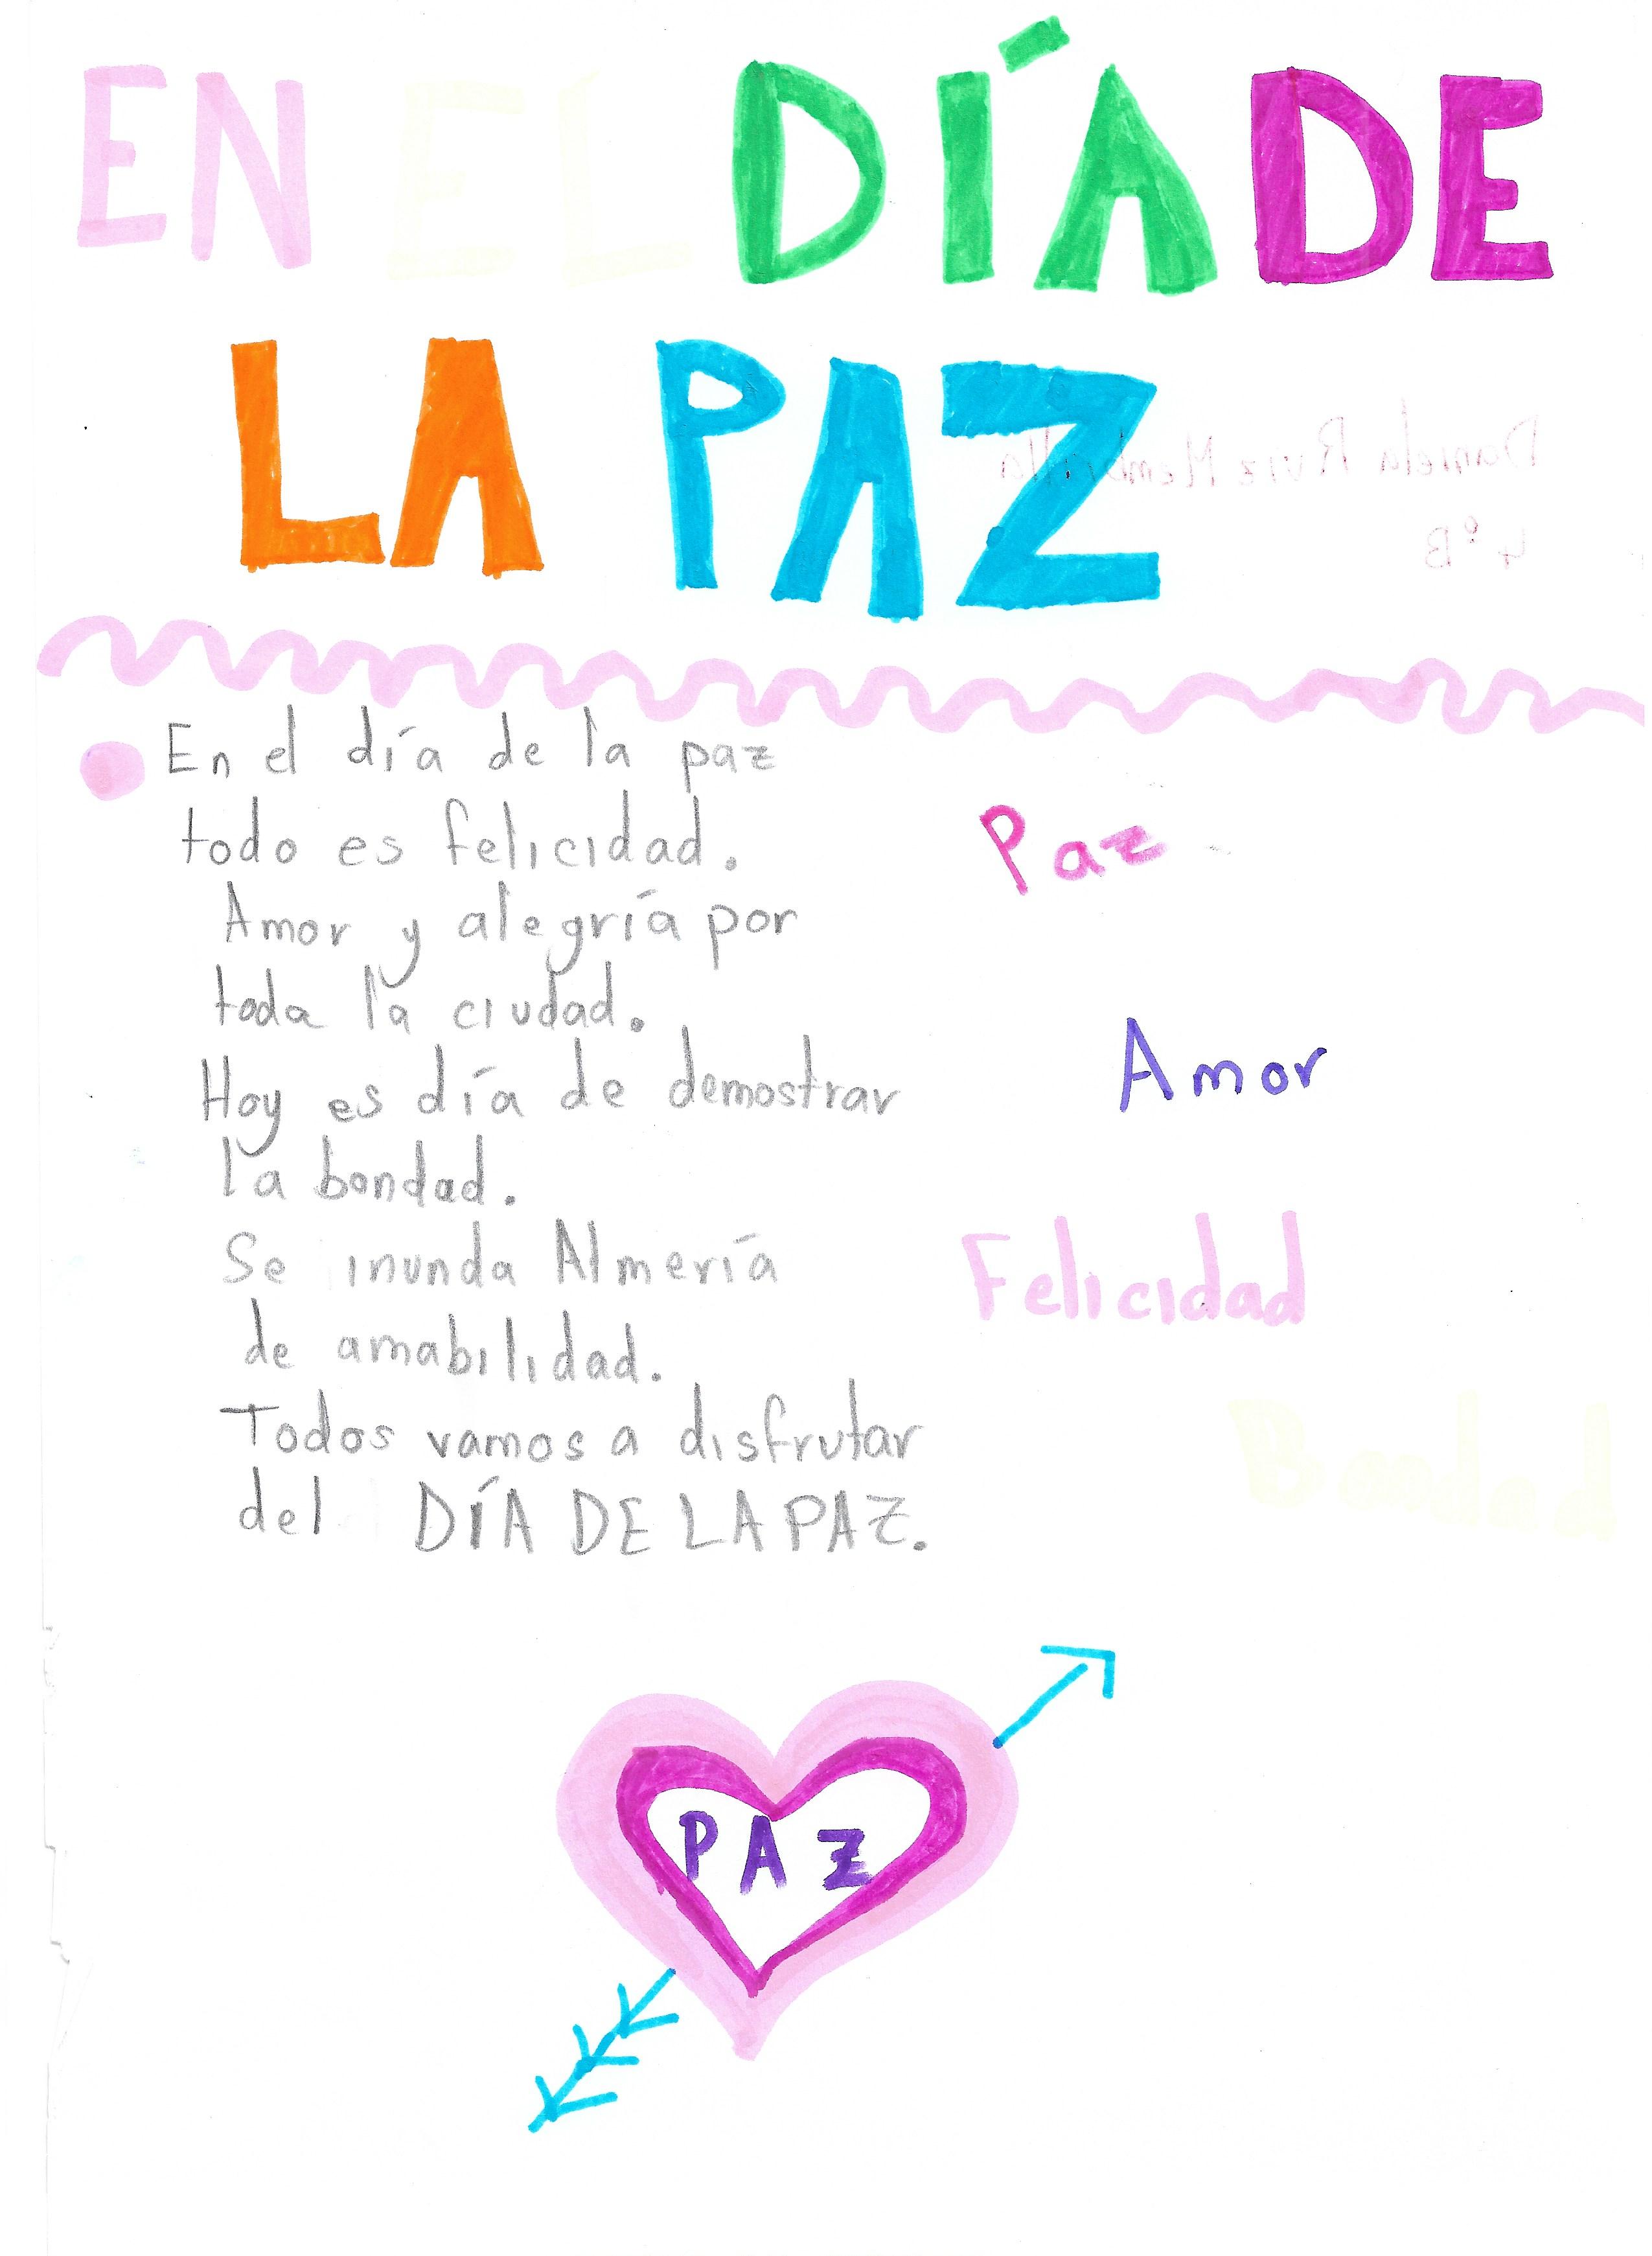 EN EL DÍA DE
LA PAZ
Daniela Ruiz
4ºB
En el día de la paz
todo es felicidad.
Amor y alegría por
toda la ciudad.
Hoy es día de demostrar
la bondad.
Se inunda Almería
de amabilidad.
Todos vamos a disfrutar
del DÍA DE LA PAZ.
Paz
Amor
Felicidad
Bondad
PAZ